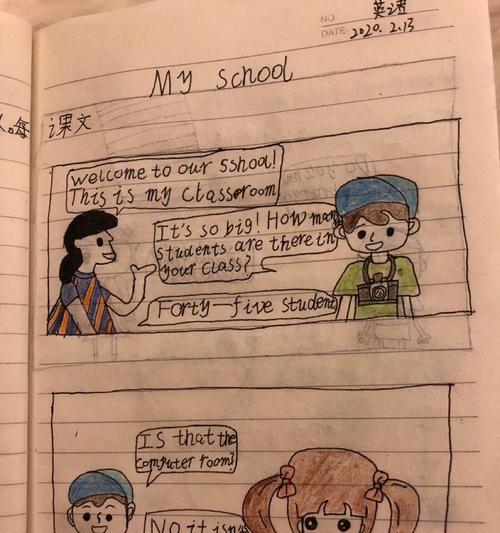 NO. 英语
DATE: 2020. 2.13
My school
人。每
课文
welcome to our sshool!
This is my classroom
It's so big! How man
students are there in
your class?
Forty-five student
IS that the
computer room?
No it isn